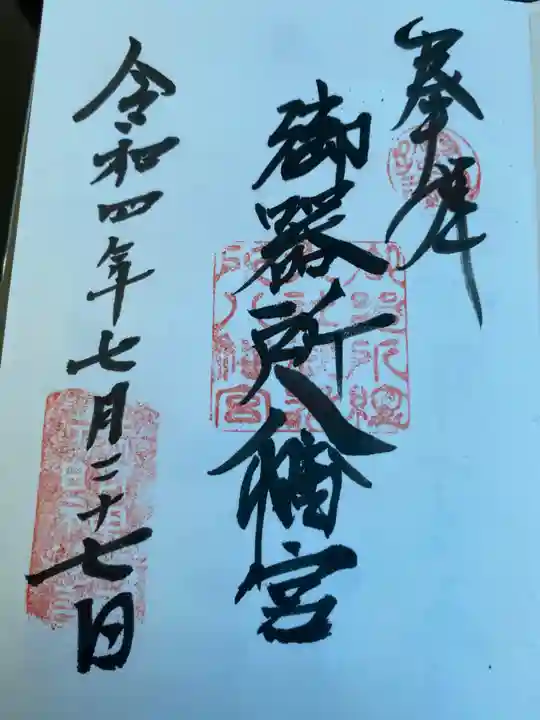 奉拝
御器所八幡宮
令和四年七月二十七日